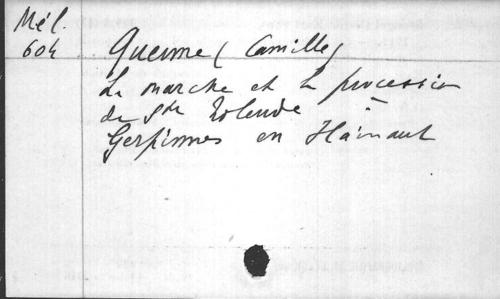 Mél.
604
Quenne (Camille)
La marche et la procession
de Ste Rolende à
Gerpinnes en Hainaut